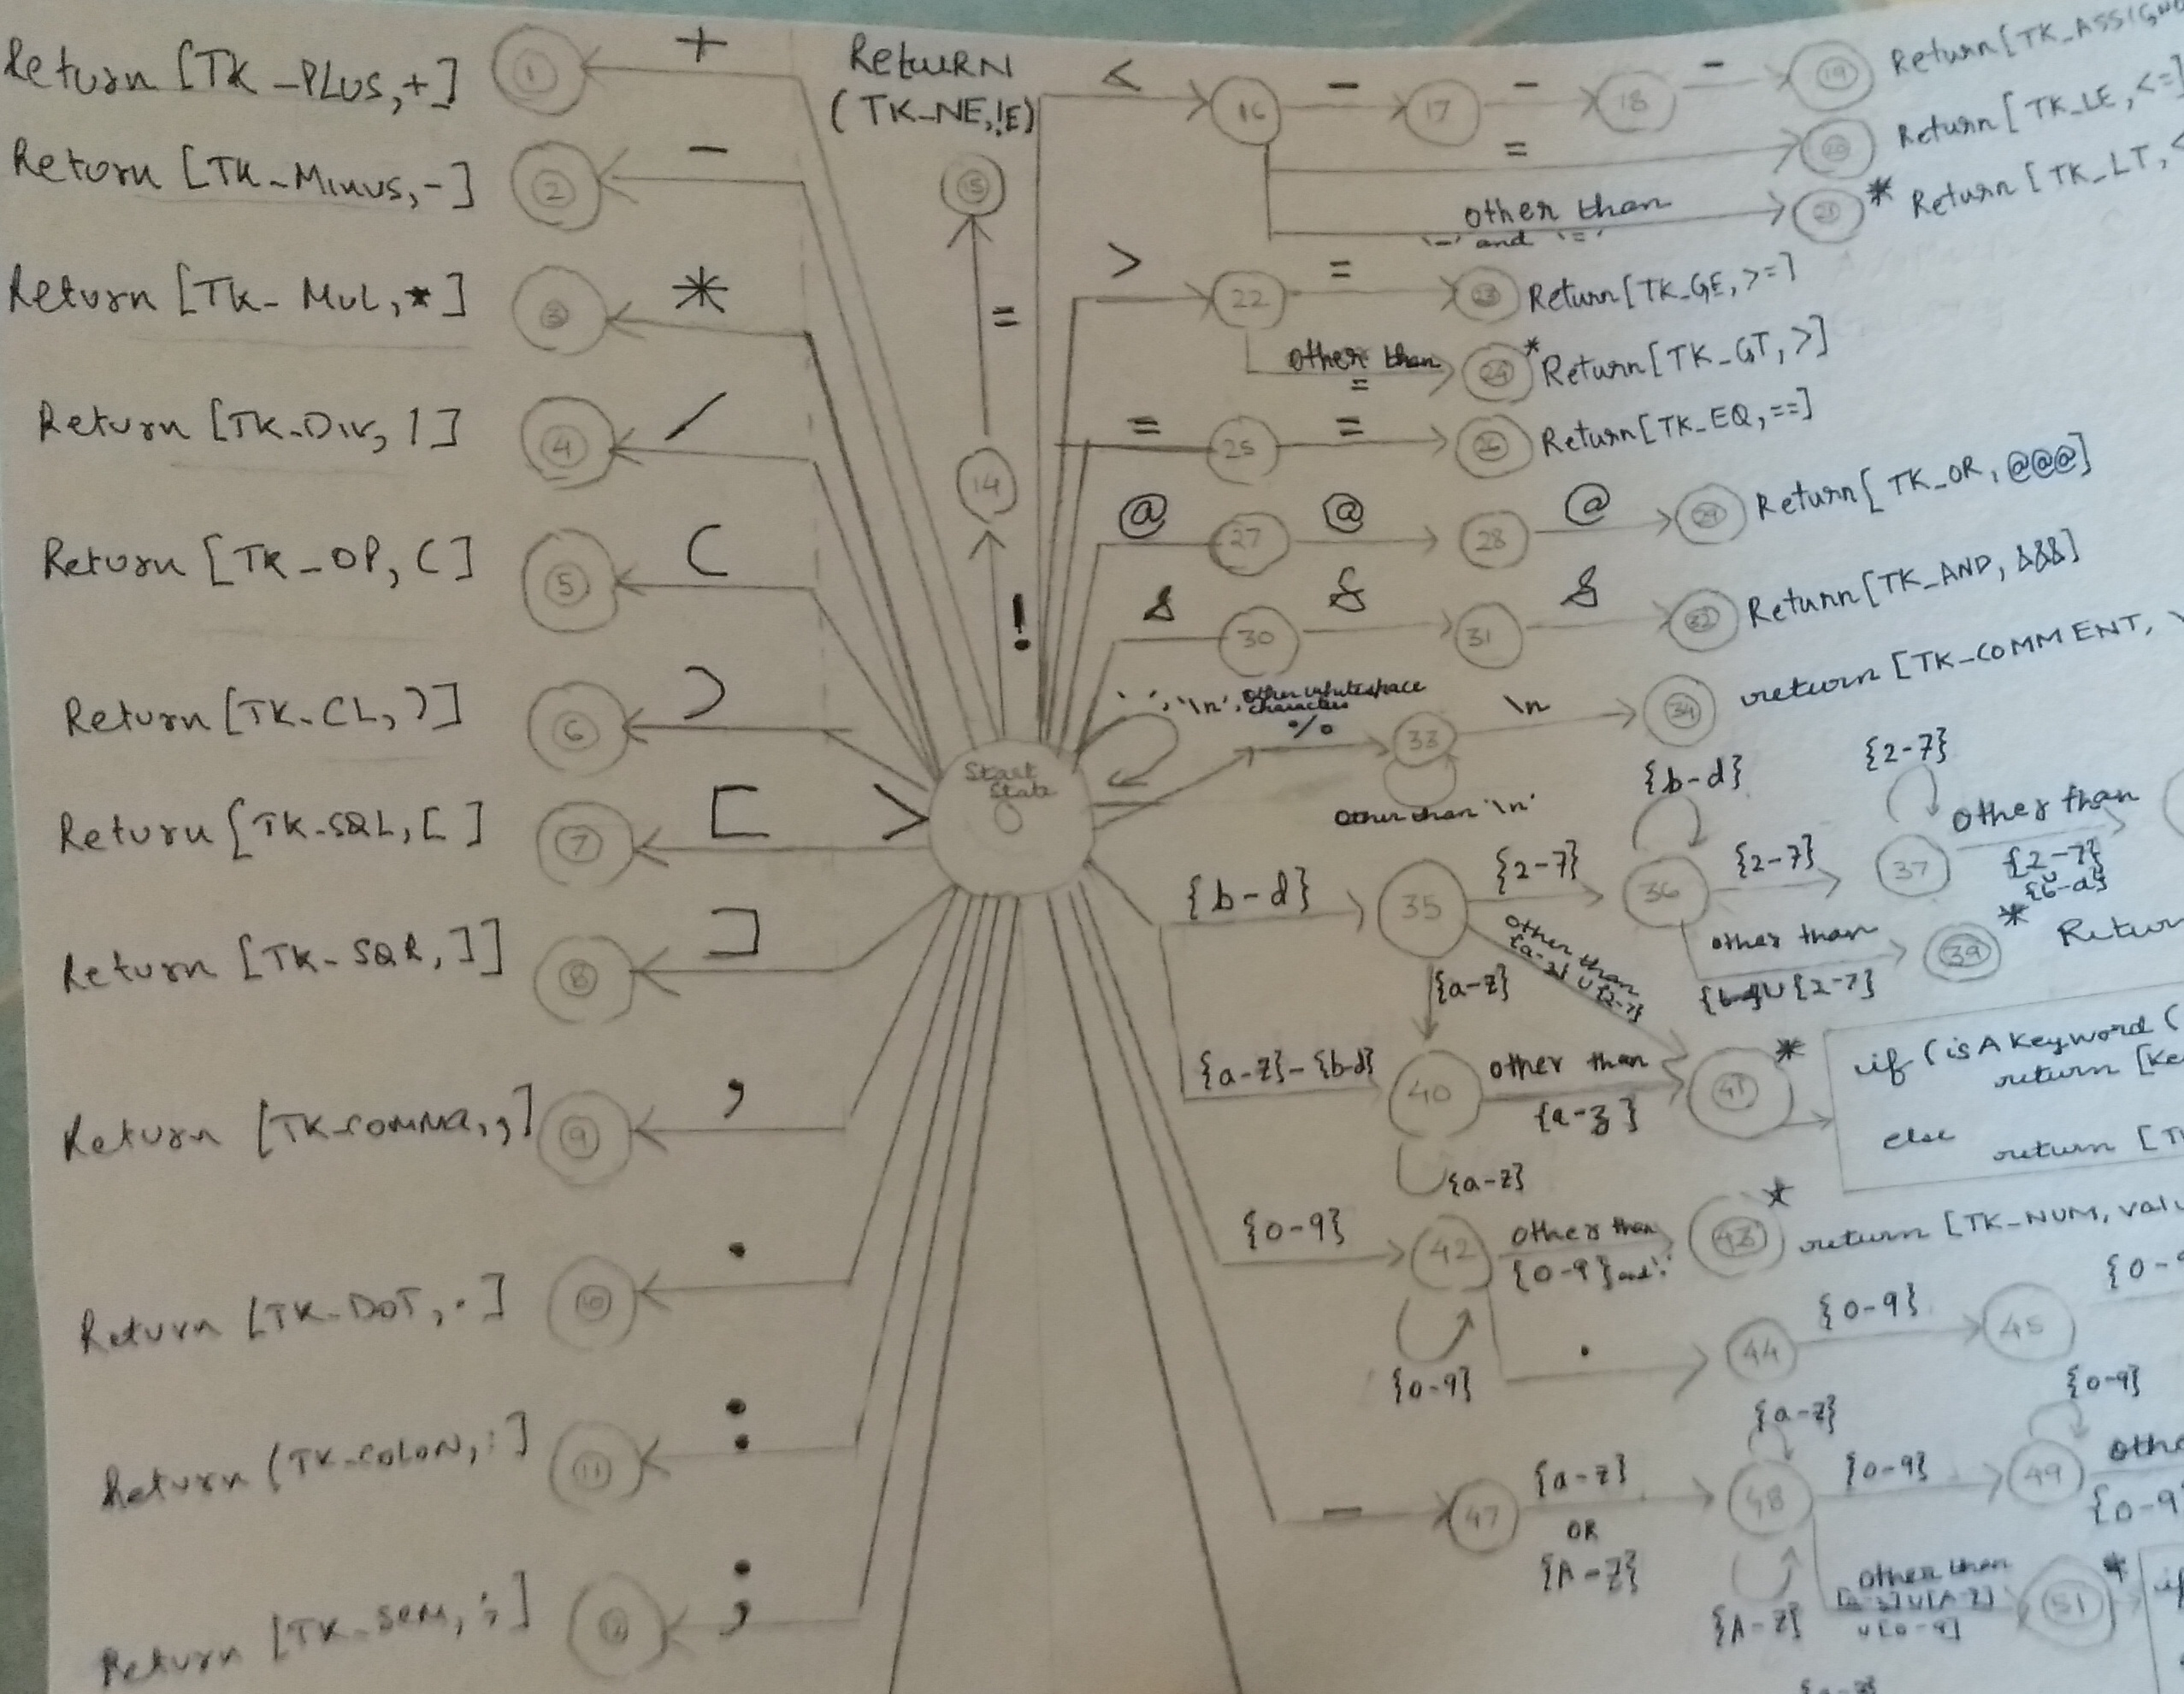 Return [TK_PLUS,+]
1
+
Return [TK_MINUS,-]
2
-
Return [TK_MUL,*]
3
*
Return [TK_DIV, /]
4
/
Return [TK_OP, (]
5
(
Return [TK_CL, )]
6
)
Return [TK_SQL, []
7
[
Return [TK_SQR, ]]
8
]
Return [TK_COMMA, ,]
9
,
Return [TK_DOT, .]
10
.
Return [TK_COLON, :]
11
:
Return [TK_SEM, ;]
;
RETURN
(TK_NE,!E)
15
=
14
!
>
Start
State
0
<
16
-
17
-
18
-
19
Return [TK_ASSIGN
=
20
Return [TK_LE, <=]
other than
'-' and '='
21
*
Return [TK_LT, <
>
22
=
23
Return [TK_GE, >=]
other than
=
24
*
Return [TK_GT, >]
=
25
=
26
Return [TK_EQ, ==]
@
27
@
28
@
29
Return [TK_OR, @@@]
&
30
&
31
&
32
Return [TK_AND, &&&]
' ', '\n', other whitespace
characters
%
33
\n
34
return [TK_COMMENT,
other than '\n'
{b-d}
35
{2-7}
{b-d}
36
{2-7}
{2-7}
37
other than
{2-7}
∪
{b-d}
other than
{b-d}∪{2-7}
39
*
Return
other than
{a-z}∪{2-7}
{a-z}
{a-z}-{b-d}
40
other than
{a-z}
{a-z}
41
*
if (is A keyword (
return [Ke
else
return [T
{0-9}
42
other than
{0-9} and '.'
43
*
return [TK_NUM, valu
{0-9}
.
44
{0-9}
45
{0-9
_
47
{a-z}
OR
{A-Z}
{a-z}
48
{A-Z}
{0-9}
{0-9}
49
othe
{0-9
other than
[a-z]∪[A-Z]
∪[0-9]
51
*
if
{a-z}